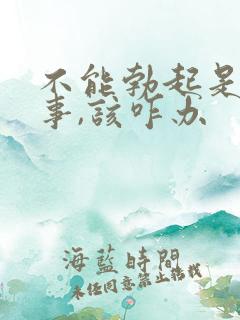 不能勃起是
事,該咋办
海藍時閣
未经同意禁止转载